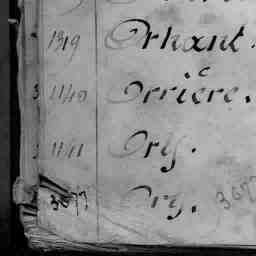 1319 Orhant.
1140 Orrière.
1111 Orly.
3677 Ory. 3677